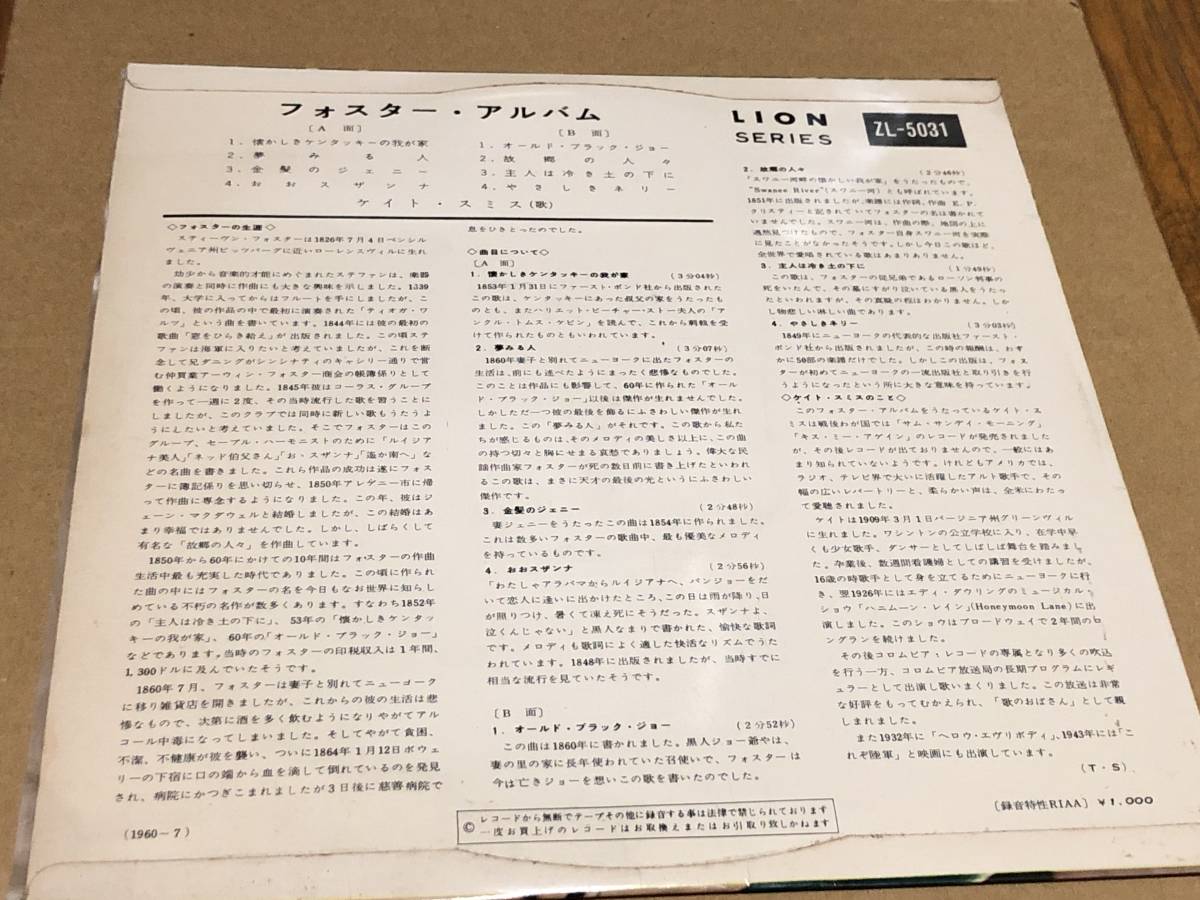 フォスター・アルバム
〔A 面〕
1. 懐かしきケンタッキーの我が家
2. 夢みる人
3. 金髪のジェニー
4. おおスザンナ
〔B 面〕
1. オールド・ブラック・ジョー
2. 故郷の人々
3. 主人は冷き土の下に
4. やさしきネリー
ケイト・スミス(歌)
LION
SERIES
ZL-5031
◇フォスターの生涯◇
スティーヴン・フォスターは1826年7月4日ペンシル
ヴェニア州ピッツバーグに近いローレンスヴィルに生れ
ました。
幼少から音楽的才能にめぐまれたステファンは、楽器
の演奏と同時に作曲にも大きな興味を示しました。1839
年、大学に入ってからはフルートを手にしましたが、こ
の頃、彼の作品の中で最初に演奏された「ティオガ・ワ
ルツ」という曲を書いています。1844年には彼の最初の
歌曲「窓をひらき給え」が出版されました。この頃ステ
ファンは海軍に入りたいと考えていましたが、これを断
念して兄ダニングがシンシナティのキャシリー通りで営
む仲買業アーウィン・フォスター商会の帳簿係りとして
働くようになりました。1845年彼はコーラス・グループ
を作って一週に2度、その当時流行した歌を習うことに
しましたが、このクラブでは同時に新しい歌もうたうよ
うにしたいと考えていました。そこでフォスターはこの
グループ、セーブル・ハーモニストのために「ルイジア
ナ美人」「ネッド伯父さん」「お・スザンナ」「遥か南へ」な
どの名曲を書きました。これら作品の成功は遂にフォス
ターに簿記係りを思い切らせ、1850年アレゲニー市に帰
って作曲に専念するようになりました。この年、彼はジ
ェーン・マクダウェルと結婚しましたが、この結婚はあ
まり幸福ではありませんでした。しかし、しばらくして
有名な「故郷の人々」を作曲しています。
1850年から60年にかけての10年間はフォスターの作曲
生活中最も充実した時代でありました。この頃に作られ
た曲の中にはフォスターの名を今日もなお世界に知らし
めている不朽の名作が数多くあります。すなわち1852年
の「主人は冷き土の下に」、53年の「懐かしきケンタッ
キーの我が家」、60年の「オールド・ブラック・ジョー」
などであります。当時のフォスターの印税収入は1年間、
1,300ドルに及んでいたそうです。
1860年7月、フォスターは妻子と別れてニューヨーク
に移り雑貨店を開きましたが、これからの彼の生活は悲
惨なもので、次第に酒を多く飲むようになりやがてアル
コール中毒になってしまいました。そしてやがて貧困、
不潔、不健康が彼を襲い、ついに1864年1月12日ボウェ
リーの下宿に口の端から血を滴して倒れているのを発見
され、病院にかつぎこまれましたが3日後に慈善病院で
(1960-7)
息をひきとったのでした。
◇曲目について◇
〔A 面〕
1. 懐かしきケンタッキーの我が家 (3分04秒)
1853年1月31日にファースト・ポンド社から出版された
この歌は、ケンタッキーにあった叔父の家をうたったも
のとも、またハリエット・ビーチャー・ストー夫人の「ア
ンクル・トムス・ケビン」を読んで、これから刺戟を受け
て作られたものともいわれています。
2. 夢みる人 (3分07秒)
1860年妻子と別れてニューヨークに出たフォスターの
生活は、前にも述べたようにまったく悲惨なものでした。
このことは作品にも影響して、60年に作られた「オール
ド・ブラック・ジョー」以後は傑作が生れませんでした。
しかしただ一つ彼の最後を飾るにふさわしい傑作が生れ
ました。この「夢みる人」がそれです。この歌から私た
ちが感じるものは、そのメロディの美しさ以上に、この曲
の持つ切々と胸にせまる哀愁でありましょう。偉大な民
謡作曲家フォスターが死の数日前に書き上げたといわれ
るこの歌は、まさに天才の最後の光というにふさわしい
傑作です。
3. 金髪のジェニー (2分48秒)
妻ジェニーをうたったこの曲は1854年に作られました。
これは数多いフォスターの歌曲中、最も優美なメロディ
を持っているものです。
4. おおスザンナ (2分56秒)
「わたしゃアラバマからルイジアナへ、バンジョーをだ
いて恋人に逢いに出かけたところ、この日は雨が降り、日
が照りつけ、暑くて凍え死にそうだった。スザンナよ、
泣くんじゃない」と黒人なまりで書かれた、愉快な歌詞
です。メロディも歌詞によく適した快活なリズムでうた
われています。1848年に出版されましたが、当時すでに
相当な流行を見ていたそうです。
〔B 面〕
1. オールド・ブラック・ジョー (2分52秒)
この曲は1860年に書かれました。黒人ジョー爺やは、
妻の里の家に長年使われていた召使いで、フォスターは
今は亡きジョーを想いこの歌を書いたのでした。
2. 故郷の人々 (2分46秒)
「スワニー河畔の懐かしい我が家」をうたったもので、
"Swanee River"(スワニー河)とも呼ばれています。
1851年に出版されましたが、楽譜には作詞、作曲 E.P.
クリスティーと記されていてフォスターの名は書かれて
いませんでした。スワニー河は、作曲の際、地図の上に
偶然見つけたもので、フォスター自身スワニー河を実際
に見たことがなかったそうです。しかし今日この歌ほど、
全世界で愛唱されている歌はあまりありません。
3. 主人は冷き土の下に (1分49秒)
この歌は、フォスターの従兄弟であるローソン判事の
死をいたんで、その墓にすがり泣いている黒人をうたっ
たといわれますが、その真疑の程はわかりません。しか
し物悲しい淋しい曲であります。
4. やさしきネリー (3分03秒)
1849年にニューヨークの代表的な出版社ファースト・
ポンド社から出版されましたが、この時の報酬は、わず
かに50部の楽譜だけでした。しかしこの出版は、フォス
ターが初めてニューヨークの一流出版社と取り引きを行
うようになったという所に大きな意味を持っています。
◇ケイト・スミスのこと◇
このフォスター・アルバムをうたっているケイト・ス
ミスは戦後わが国では「サム・サンデイ・モーニング」
「キス・ミー・アゲイン」のレコードが発売されました
が、その後レコードが出ておりませんので、一般にはあ
まり知られていないようです。けれどもアメリカでは、
ラジオ、テレビ界で大いに活躍したアルト歌手で、その
幅の広いレパートリーと、柔らかい声は、全米にわたっ
て愛聴されました。
ケイトは1909年3月1日バージニア州グリーンヴィル
に生れました。ワシントンの公立学校に入り、在学中早
くも少女歌手、ダンサーとしてしばしば舞台を踏みまし
た。卒業後、数週間看護婦としての講習を受けましたが、
16歳の時歌手として身を立てるためにニューヨークに行
き、翌1926年にはエディ・ダウリングのミュージカル・
ショウ「ハニムーン・レイン」(Honeymoon Lane)に出
演しました。このショウはブロードウェイで2年間のロ
ングランを続けました。
その後コロムビア・レコードの専属となり多くの吹込
を行う一方、コロムビア放送局の長期プログラムにレギ
ュラーとして出演し歌いまくりました。この放送は非常
な好評をもってむかえられ、「歌のおばさん」として親
しまれました。
また1932年に「ヘロウ・エヴリボディ」、1943年には「こ
れぞ陸軍」と映画にも出演しています。
(T・S)
〔録音特性RIAA〕 ¥1,000
© レコードから無断でテープその他に録音する事は法律で禁じられております
一度お買上げのレコードはお取換えまたはお引取り致しかねます